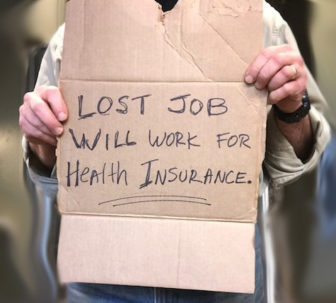 LOST JOB
WILL WORK FOR
HEalth INSURANCE.